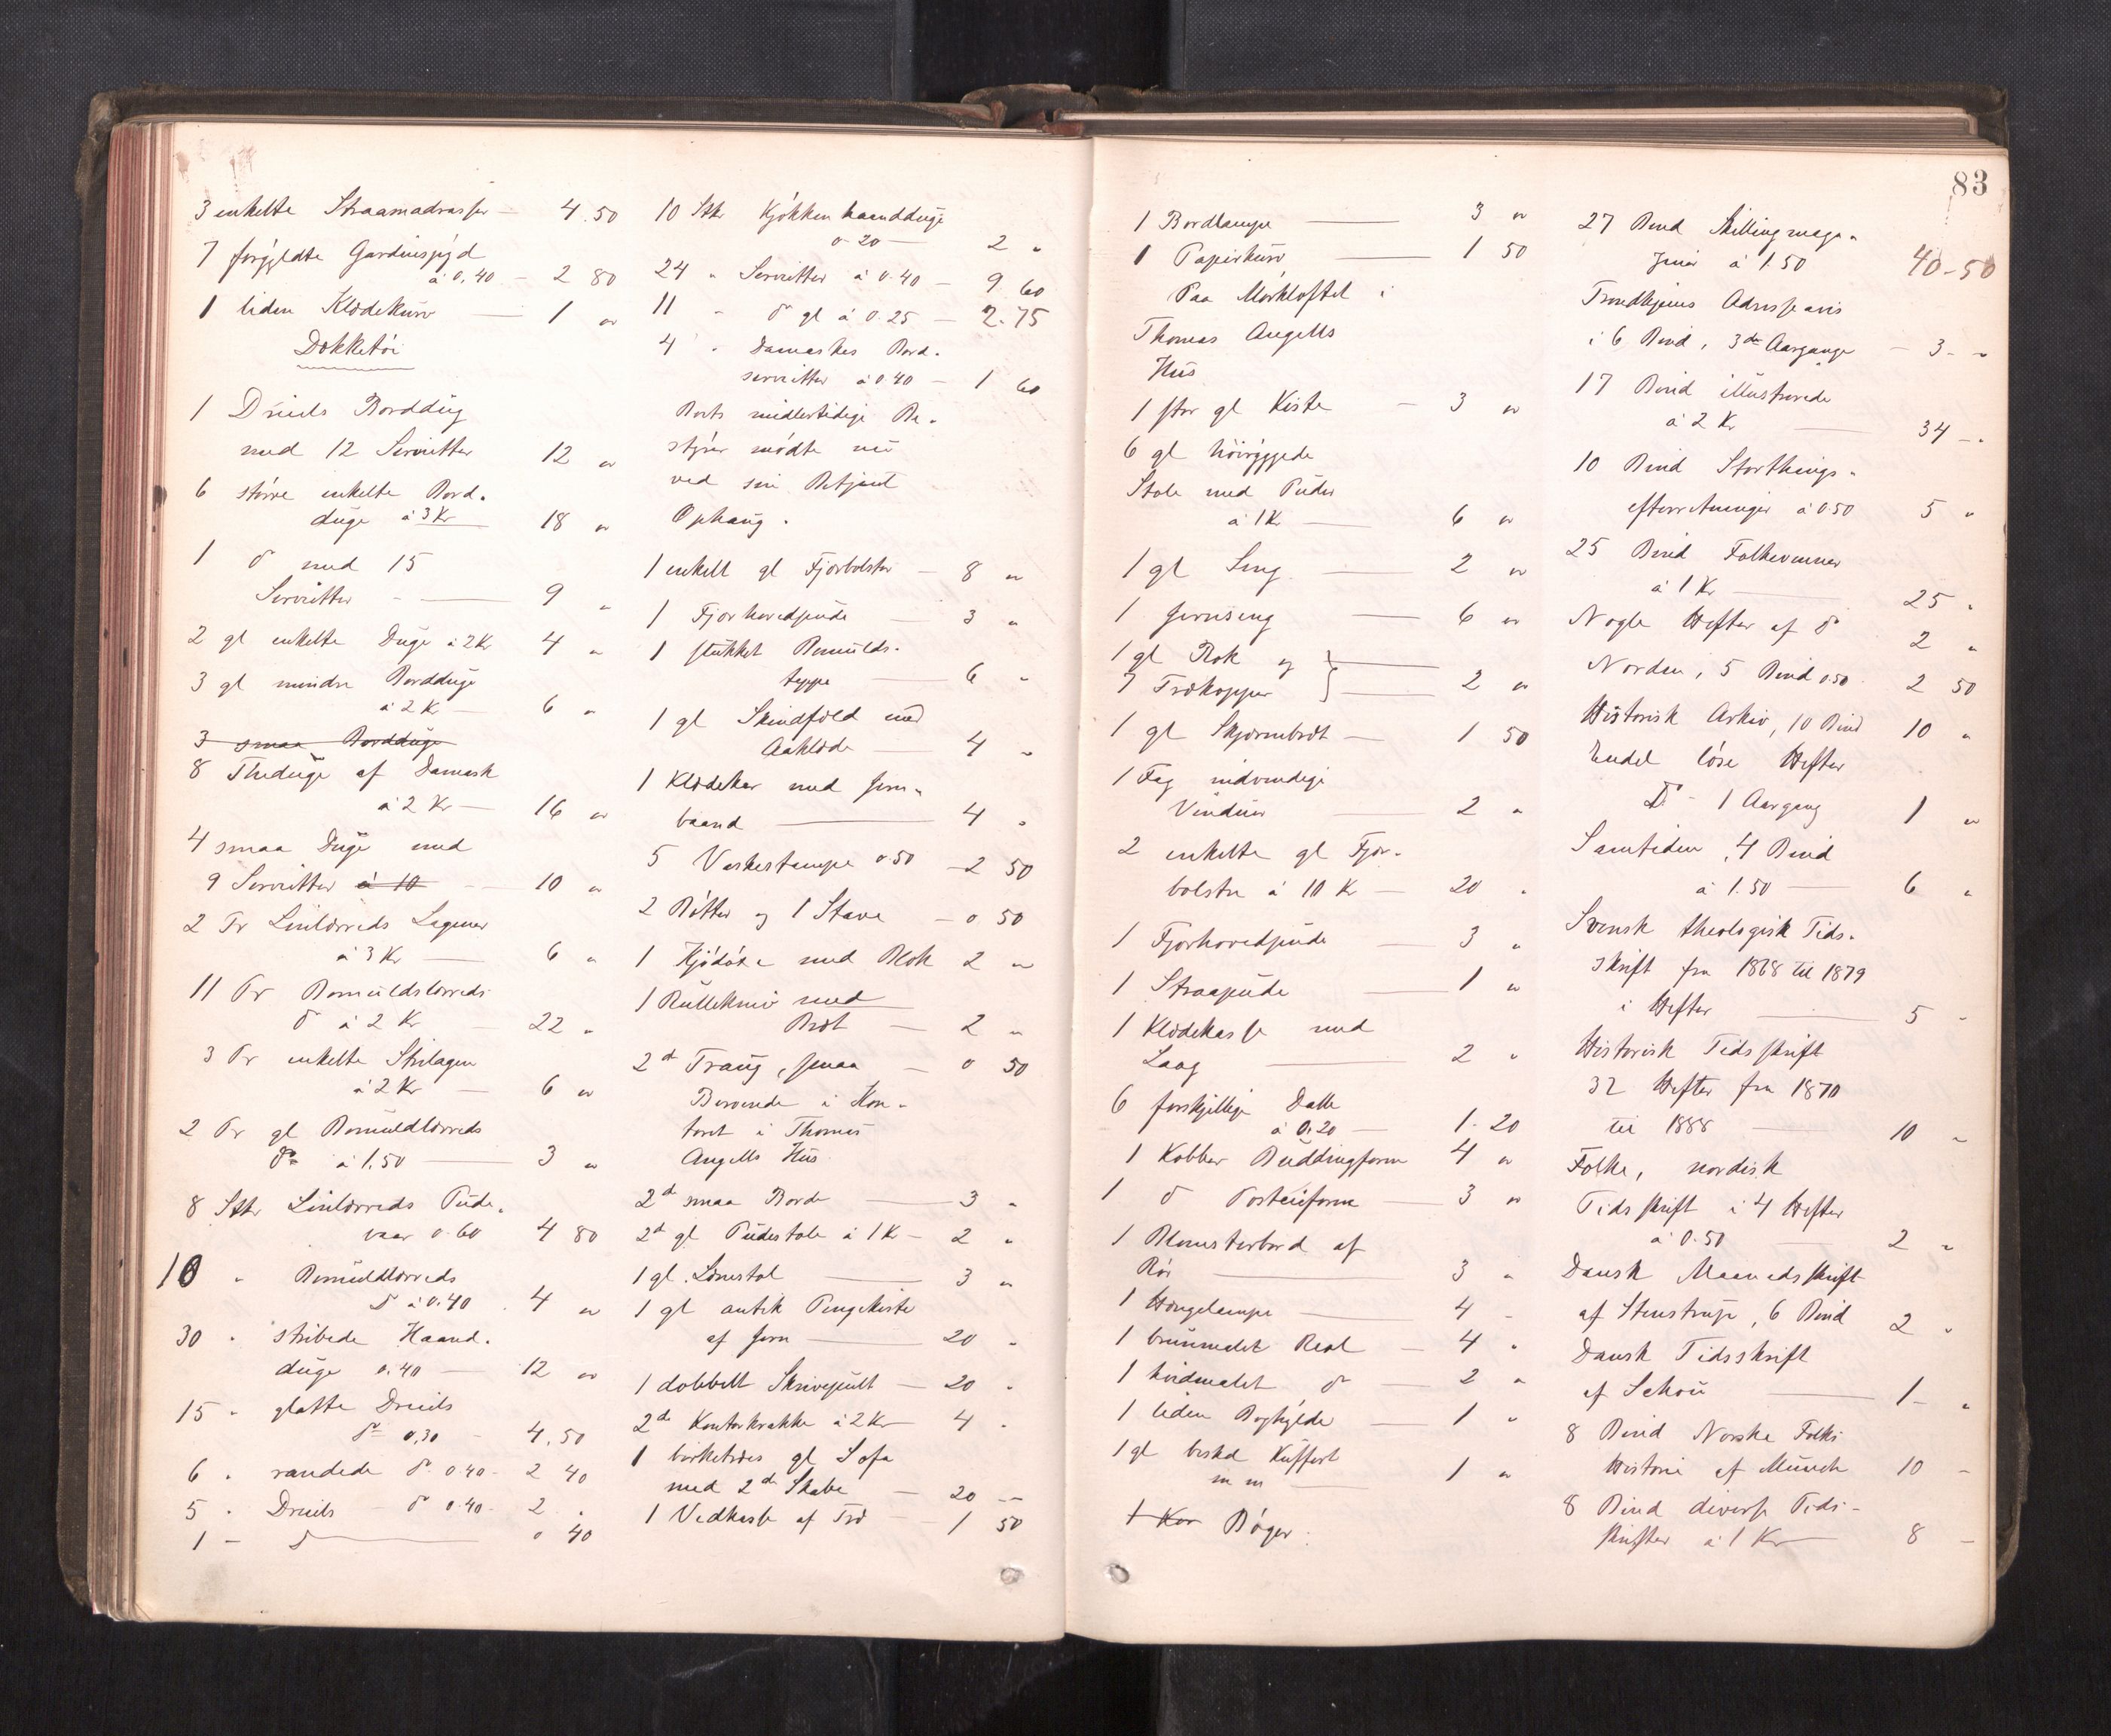 3 enkelte Straamadrasser - 4.50
7 forgyldte Gardinspyd
à 0,40 - 2 80
1 liden Klædekurv - 1 „
Dækketøi
1 Dreiels Borddug
med 12 Servietter 12 „
6 større enkelte Bord-
duge à 3 Kr 18 „
1 do med 15
Servietter - 9 „
2 gl enkelte Duge à 2 Kr 4 „
3 gl mindre Borddüge
à 2 K - 6 „
3 smaa Borddüge
8 Theduge af Damask
à 2 Kr - 16 „
4 smaa Duge med
9 Servietter à 10 - 10 „
2 Pr Linlærreds Lagener
à 3 Kr - 6 „
11 Pr Bomuldslærreds
do à 2 Kr 22 „
3 Pr enkelte Strilagen
à 2 Kr - 6 „
2 Pr gl Bomuldlærreds
do à 1.50 - 3 „
8 Stkr Linlærreds Pude-
vaar 0.60 4 80
10 „ Bomuldlærreds
do à 0.40 . 4 „
30 „ stribede Haand-
duge 0.40 - 12 „
15 „ glatte Dreiels
do 0,30 - 4.50
6 „ randede do 0.40 - 2 40
5 „ Dreiels - do 0.40 - 2 „
1 - do - 0 40
10 Stkr Kjøkkenhaandduge
0.20 - 2 „
24 „ Servietter à 0.40 - 9 60
11 „ do gl à 0.25 - 2.75
4 „ Damaskes Bord-
servietter à 0.40 - 1 60
Boets midlertidige Be-
styrer mødte nu
ved sin Betjent
Ophaug.
1 enkelt gl Fjærbolster - 8 „
1 Fjærhovedpude - 3 „
1 stukket Bomulds-
teppe - 6 „
1 gl Skindfæld med
Aaklæde - 4 „
1 Klædekar med Jern-
baand - 4 „
5 Vaskestampe 0.50 - 2 50
2 Bøtter og 1 Stave - 0 50
1 Kjødøxe med Blok 2 „
1 Rullekniv med
Bræt - 2 „
2de Traug, smaa - 0 50
Beroende i Kon-
toret i Thomas
Angells Hus.
2de smaa Borde - 3 „
2de gl Pudestole à 1 Kr - 2 „
1 gl. Lænestol - 3 „
1 gl antik Pengekiste
af Jern - 20 „
1 dobbelt Skrivepult - 20 „
2de Kontorkrakke à 2 Kr - 4 „
1 birketræes gl Sofa
med 2de Skabe - 20 -
1 Vedkasse af Træ - 1 50
83
1 Bordlampe - 3 „
1 Papirkurv - 1 50
Paa Mørkloftet i
Thomas Angells
Hus
1 stor gl Kiste - 3 „
6 gl høiryggede
Stole med Puder
à 1 Kr - 6 „
1 gl Seng - 2 „
1 Jernseng - 6 „
1 gl Rok og
7 Trækopper } - 2 „
1 gl Skjærmbræt - 1 50
1 Fag indvendige
Vinduer - 2 „
2 enkelte gl Fjær-
bolstre à 10 Kr - 20 „
1 Fjærhovedpude - 3 „
1 Straapude - 1 „
1 Klædekasse med
Laag - 2 „
6 forskjellige Dalle
à 0.20 - 1.20
1 Kobber Buddingform 4 „
1 do Posteiform 3 „
1 Blomsterbord af
Rør - 3 „
1 Hængelampe - 4 -
1 brunmalet Reol - 4 „
1 hvidmalet do - 2 „
1 liden Boghylde - 1 „
1 gl beskd Kuffert
m m - 1 „
1 Kar Bøger.
27 Bind Skillingmaga-
ziner à 1.50 40-50
Trondhjems Adresseavis
i 6 Bind, 3de Aargange - 3 - „
17 Bind illustrerede
à 2 Kr - 34 - „
10 Bind Storthings-
efterretninger à 0.50 5 „
25 Bind Folkevennen
à 1 Kr - 25 „
Nogle Hefter af do 2 „
Norden, 5 Bind 0.50 2 50
Historisk Arkiv, 10 Bind 10 „
Endel løse Hefter
Do - 1 Aargang 1 „
Samtiden, 4 Bind
à 1.50 - 6 „
Svensk theologisk Tids-
skrift fra 1868 til 1879
i Hefter - 5 -
Historisk Tidsskrift
32 Hefter fra 1870
til 1888 - 10 „
Folke, nordisk
Tidsskrift i 4 Hefter
à 0.50 - 2 „
Dansk Maanedsskrift
af Stenstrup, 6 Bind 2 „
Dansk Tidsskrift
af Schou - 1 - „
8 Bind Norske Folks
Historie af Munch 10 -
8 Bind diverse Tids-
skrifter à 1 Kr - 8 -